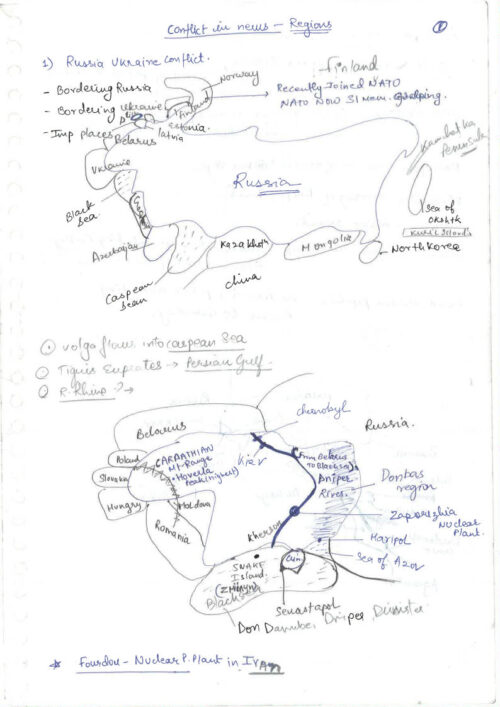 Conflict in news - Regions
①
1) Russia Ukraine Conflict.
- Bordering Russia
- Bordering Ukraine
- Imp places
Norway
Finland
Finland
Recently Joined NATO
NATO Now 31 mem.
Estonia.
latvia
Belarus
Ukraine
Black
Sea
Azerbaijan
Caspean
Sean
Russia
Kazakhstn
China
Mongolia
North Korea
Kambatka
Peninsula
Sea of
Okshtk
Kuril Islands
① Volga flows into carpean Sea
② Tigris Euprates → Persian Gulf.
③ R. Rhine ? →
Belarus
Chernobyl
Russia.
Poland
Slovakia
Hungry
Romania
Moldova
CARPATHIAN
Mt. Range
Hoverla
Peak (highest)
Kiev
(From Belarus
To Black sea)
Dniper
River.
Donbas
region
Zaporizhia
Nuclear
Plant.
Maripol
Sea of Azov
Kherson
SNAKE
Island
Black sea
Sevastapol
Don Danube, Dniper, Dniester
* Fourdou - Nuclear P. Plant in Iran